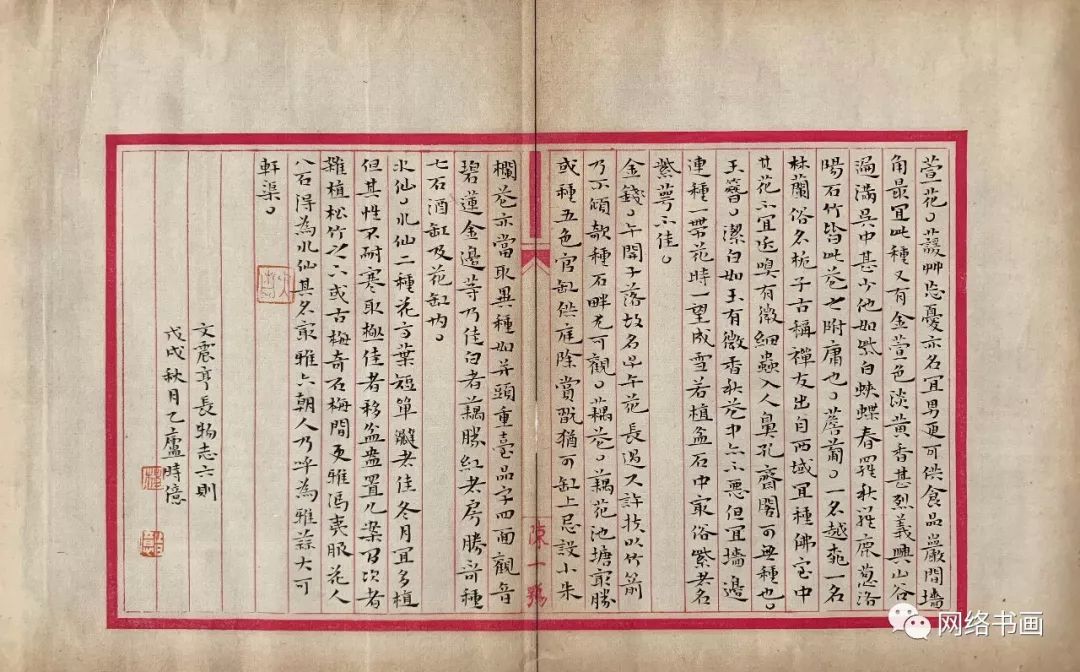 萱花。萲艸忘憂亦名宜男更可供食品巖間墻
角最宜此種又有金萱色淡黃香甚烈義興山谷
遍滿吳中甚少他如紫白蛺蝶春羅秋羅鹿葱洛
陽石竹皆此花之附庸也。薝蔔。一名越桃一名
林蘭俗名梔子古稱禪友出自西域宜種佛室中
其花不宜近嗅有微細蟲入人鼻孔齋閣可無種也。
玉簪。潔白如玉有微香秋花中亦不惡但宜墻邊
連種一帶花時一望成雪若植盆石中最俗紫者名
紫萼不佳。
金錢。午開子落故名子午花長過又許扶以竹箭
乃不傾欹種石畔尤可觀。藕花。藕花池塘最勝
或種五色官缸供庭除賞翫猶可缸上忌設小朱
欄花亦當取異種如并頭重臺品字四面觀音
碧蓮金邊等乃佳白者藕勝紅者房勝奇種
七石酒缸及花缸內。
水仙。水仙二種花高葉短單瓣者佳冬月宜多植
但其性不耐寒取極佳者移盆盎置几案間次者
雜植松竹之下或古梅奇石間更雅馮夷服花人
八石得為水仙其名最雅六朝人乃呼為雅蒜大可
軒渠。
文震亨長物志六則
戊戌秋月乙廬時憶
陳一號
网络书画